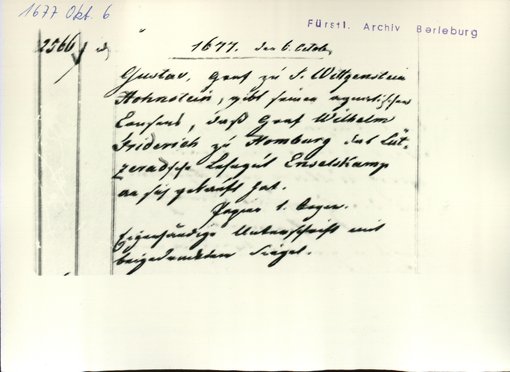 1677 Okt. 6
Fürstl. Archiv Berleburg
2566
1677. den 6. Octob.
Gustav, Graf zu S. Wittgenstein
Hohnstein, gibt seinen agnatischen
Consens, daß Graf Wilhelm
Friderich zu Homburg das Lüt-
zeradsche Lehngut Enselskamp
an sich gekauft hat.
Papier 1. Bogen.
Eigenhändige Unterschrift mit
beigedrucktem Siegel.